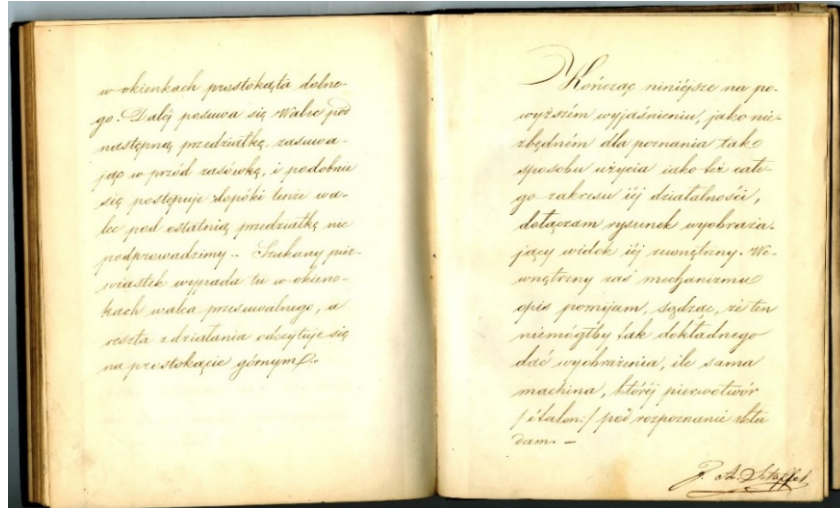 w okienkach prostokąta dolne-
go. Daléj posuwa się Walec pod
następną przedziałkę, zasuwa-
jąc w przód zasówkę, i podobnie
się postępuje dopóki tenże wa-
lec pod ostatnią przedziałkę nie
podprowadzimy.. Szukany pier-
wiastek wypada tu w okien-
kach walca przesuwalnego, a
reszta z działania odczytuje się
na prostokącie górnym.
Kończąc niniéjsze na po-
wyższém wyjaśnieniu, jako nie-
zbędném dla poznania tak
sposobu użycia iako też całe-
go zakresu iéj działalności,
dołączam rysunek wyobraża-
jący widok iéj zewnętrzny. We-
wnętrzny zaś mechanizmu
opis pomijam, sądząc, że ten
niemógłby tak dokładnego
dać wyobrażenia, ile sama
machina, któréj pierwotwór
/:étalon:/ pod rozpoznanie skła
dam. —
J. A. Staffel